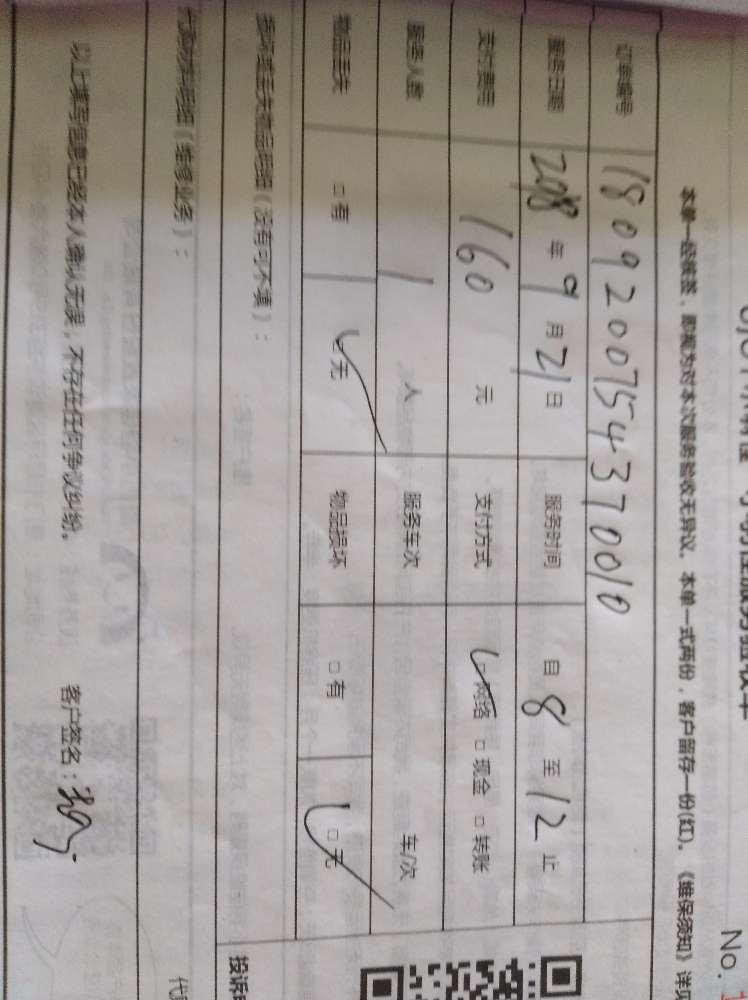 No.
本单一经核签，即视为对本次服务验收无异议。本单一式两份，客户留存一份(红)。《维保须知》详见
订单编号 180920075437001​0
服务日期 2018年9月21日 服务时间 自8至12止
支付费用 160元 支付方式 □网络 □现金 □转账
服务人数 1人 服务车次 车/次
物品丢失 □有 □无 物品损坏 □有 □无
损坏或丢失物品明细（没有可不填）：
投诉
代购材料明细（维修业务）：
以上填写信息已经本人确认无误，不存在任何争议纠纷。 客户签名：